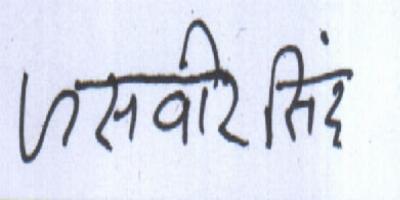 जसवीर सिंह